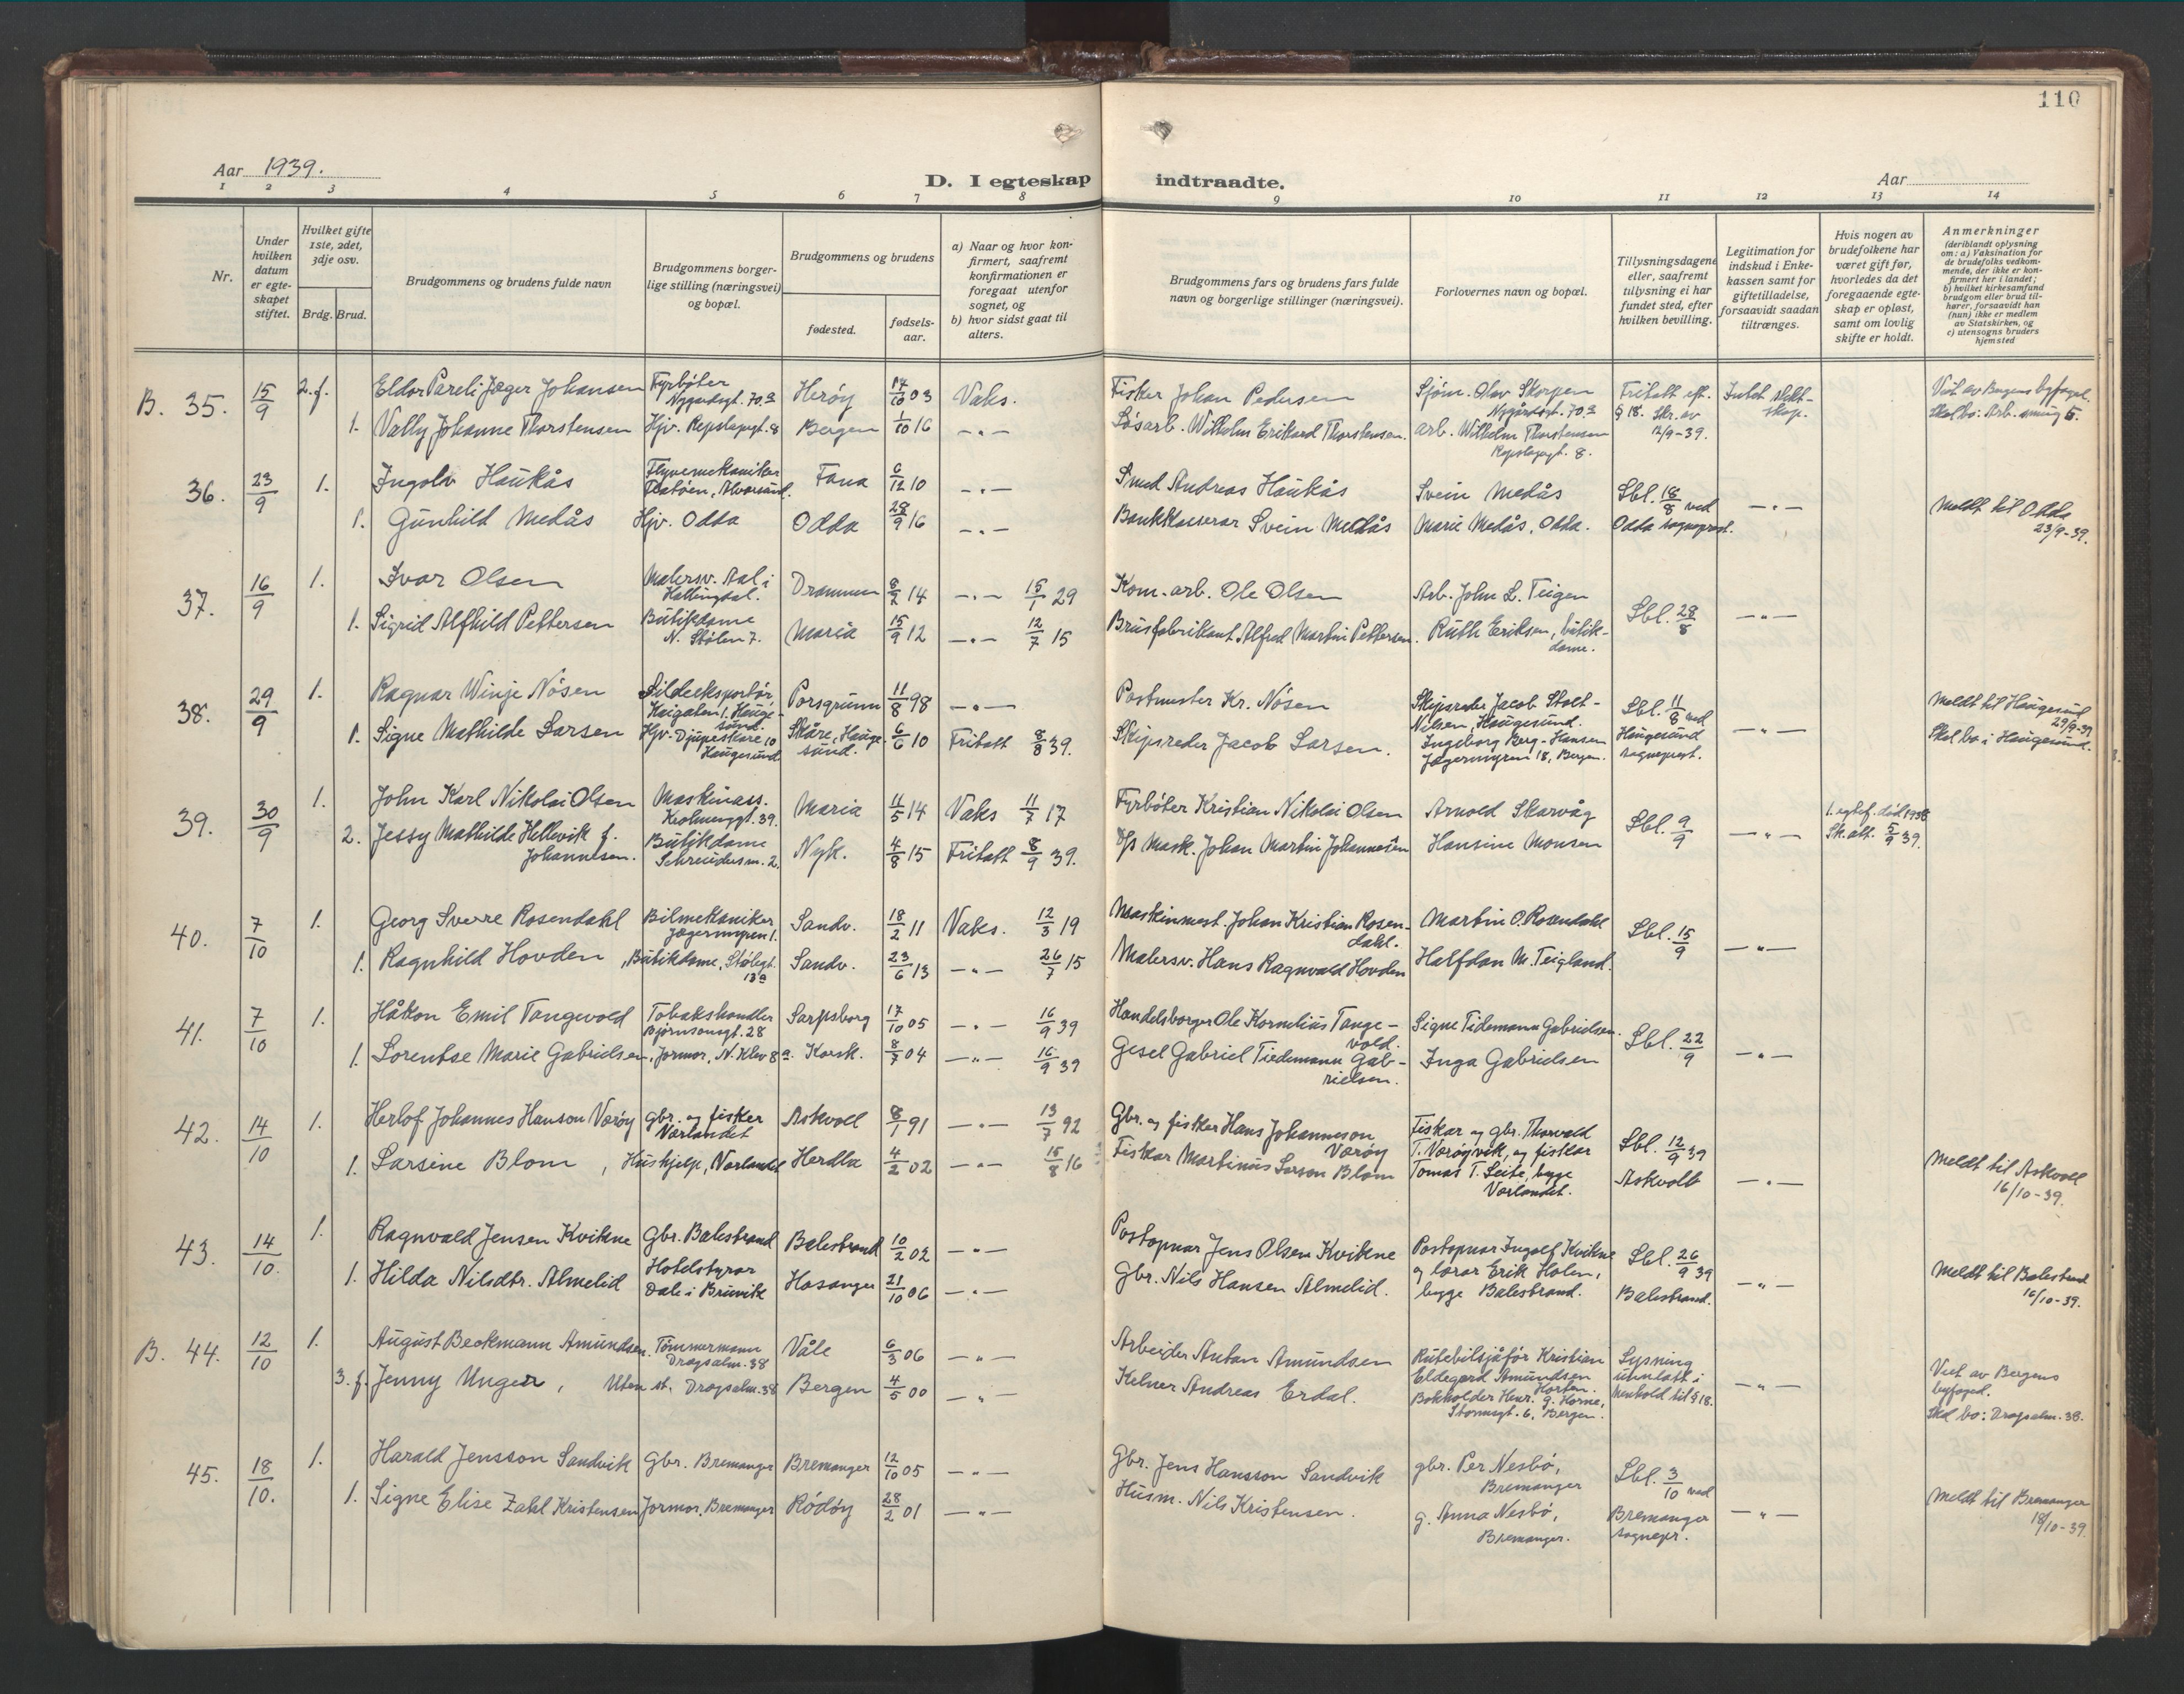 110
Aar 1939.
D. I egteskap indtraadte.
Aar
1 2 3 4 5 6 7 8 9 10 11 12 13 14
Nr.
Under hvilken datum er egteskapet stiftet.
Hvilket gifte 1ste, 2det, 3dje osv.
Brdg. Brud.
Brudgommens og brudens fulde navn
Brudgommens borgerlige stilling (næringsvei) og bopæl.
Brudgommens og brudens
fødested.
fødselsaar.
a) Naar og hvor konfirmert, saafremt konfirmationen er foregaat utenfor sognet, og
b) hvor sidst gaat til alters.
Brudgommens fars og brudens fars fulde navn og borgerlige stillinger (næringsvei).
Forlovernes navn og bopæl.
Tillysningsdagene eller, saafremt tillysning ei har fundet sted, efter hvilken bevilling.
Legitimation for indskud i Enkekassen samt for giftetilladelse, forsaavidt saadan tiltrænges.
Hvis nogen av brudefolkene har været gift før, hvorledes da det foregaaende egteskap er opløst, samt om lovlig skifte er holdt.
Anmerkninger
(deriblandt oplysning om: a) Vaksination for de brudefolks vedkommende, der ikke er konfirmert her i landet;
b) hvilket kirkesamfund brudgom eller brud tilhører, forsaavidt han (hun) ikke er medlem av Statskirken, og
c) utensogns bruders hjemsted
B. 35. 15/9 2. f. Eldor Pareli Jæger Johansen Fyrbøter Nygårdsgt. 70.a Herøy 14/10 03 Vaks. Fisker Johan Pedersen Sjøm. Olav Skorpen Nygårdsgt. 70a Fritatt eft. § 18. Skr. av 12/9-39. Intet slektskap. Viet av Bergens byfoged.
1. Vally Johanne Thorstensen Hjv. Repslagergt. 8 Bergen 1/10 16 -"- Løsarb. Wilhelm Erikard Thorstensen. arb. Wilhelm Thorstensen Repslagergt. 8.
36. 23/9 1. Ingolv Haukås Flyvemekaniker Flatøen, Alversund. Fana 6/12 10 -"- Smed Andreas Haukås Svein Medås Lbl. 18/8 ved Odda sogneprest. -"- Meldt til Odda 23/9-39.
1. Gunhild Medås Hjv. Odda Odda 28/9 16 -"- Bankkasserar Svein Medås Marie Medås, Odda.
37. 16/9 1. Ivar Olsen Malersv. Aal i Hallingdal. Drammen 8/2 14 -"- 15/1 29 Kom. arb. Ole Olsen Arb. John L. Teigen Lbl. 28/8 -"-
1. Sigrid Alfhild Pettersen Butikdame N. Stølen 7. Maria 15/9 12 -"- 12/7 15 Brusfabrikant Alfred Martin Pettersen. Ruth Eriksen, butikdame.
38. 29/9 1. Ragnar Winje Nøsen Sildeeksportør, Haigaten 1. Haugesund. Porsgrunn 11/8 98 -"- Postmester Kr. Nøsen Skipsreder Jacob Stolt-Nilsen, Haugesund. Lbl. 11/8 ved Haugesund sogneprest. -"- Meldt til Haugesund 29/9-39
1. Signe Mathilde Larsen Hjv. Djupaskare 10 Haugesund Skåre, Haugesund. 6/6 10 Fritatt 8/8 39. Skipsreder Jacob Larsen. Ingeborg Berg-Hansen Jægermyren 18, Bergen. Skal bo i Haugesund.
39. 30/9 1. John Karl Nikolai Olsen Maskinass. Holmengt. 39. Maria 11/5 14 Vaks 11/7 17 Fyrbøter Kristian Nikolai Olsen Arnold Skarvåg Lbl. 9/9 -"- 1. egtef. død 1938 Sk. att. 5/9 39.
2. Jessy Mathilde Hellevik f. Johannesen. Butikdame Schreudersm. 2. Nyk. 4/8 15 Fritatt 8/9 39. D/s Mask. Johan Martin Johannesen Hansine Monsen
40. 7/10 1. Georg Sverre Rosendahl Bilmekaniker Jægermyren 1. Sandv. 18/2 11 Vaks. 12/3 19 Maskinmest. Johan Kristian Rosendahl. Martin O. Rosendahl Lbl. 15/9 -"-
1. Ragnhild Hovden, Butikdame, Stølegt. 13a Sandv. 23/6 13 -"- 26/7 15 Malersv. Hans Ragnvald Hovden Halfdan M. Teigland.
41. 7/10 1. Håkon Emil Tangevold Tobakshandler Bjørnsonsgt. 28 Sarpsborg 17/10 05 -"- 16/9 39 Handelsborger Ole Kornelius Tangevold. Signe Tidemann Gabrielsen. Lbl. 22/9 -"-
1. Lorentse Marie Gabrielsen, Jormor, N. Klev 8a. Korsk. 8/7 04 -"- 16/9 39 Gesel Gabriel Tiedemann Gabrielsen. Inga Gabrielsen
42. 14/10 1. Herlof Johannes Hanson Værøy gbr. og fisker Værlandet Askvoll 8/1 91 -"- 13/7 92 Gbr. og fisker Hans Johanneson Værøy Fiskar og gbr. Thorvald T. Værøyvik, og fiskar Tomas T. Leite, begge Værlandet. Lbl. 12/9 39 Askvoll -"- Meldt til Askvoll 16/10-39.
1. Larsine Blom, Hushjelp, Værlandet Herdla 4/2 02 -"- 15/8 16 Fiskar Martinus Larson Blom
43. 14/10. 1. Ragnvald Jensen Kvikne Gbr. Balestrand Balestrand 10/2 02 -"- Postopnar Jens Olsen Kvikne Postopnar Ingolf Kvikne og lærar Erik Holen, begge Balestrand. Lbl. 26/9 39 Balestrand. -"- Meldt til Balestrand 16/10-39.
1. Hilda Nilsdtr. Almelid Hotelstyrar Dale i Bruvik Hosanger 21/10 06 -"- Gbr. Nils Hansen Almelid.
B. 44. 12/10 1. August Beckmann Amundsen. Tømmermann Dragsalm. 38 Våle 6/3 06 -"- Arbeider Anton Amundsen Rutebilsjåfør Kristian Eldegard Amundsen Horten. Lysning unnlatt i henhold til § 18. -"- Viet av Bergens byfoged.
3. f. Jenny Unger, Uten st. Dragsalm. 38 Bergen 4/5 00 -"- Kelner Andreas Erdal. Bokholder Henr. G. Horne, Stormsgt. 6, Bergen. Skal bo: Dragsalm. 38.
45. 18/10. 1. Harald Jensson Sandvik Gbr. Bremanger Bremanger 12/10 05 -"- Gbr. Jens Hansson Sandvik gbr. Per Nesbø, Bremanger Lbl. 3/10 ved Bremanger sognepr. -"- Meldt til Bremanger 18/10-39.
1. Signe Elise Zahl Kristensen Jormor, Bremanger Rødøy 28/2 01 -"- Husm. Nils Kristensen. g. Anna Nesbø, Bremanger.